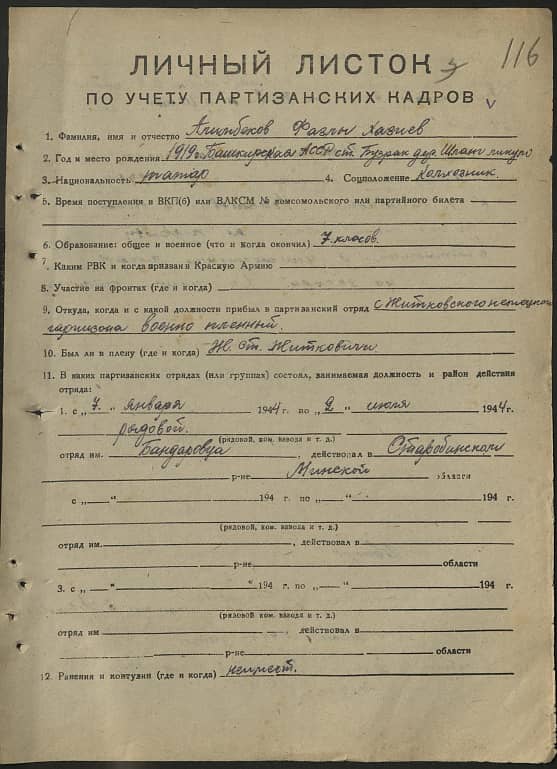 116
ЛИЧНЫЙ ЛИСТОК
ПО УЧЕТУ ПАРТИЗАНСКИХ КАДРОВ
1. Фамилия, имя и отчество Фазлы Хазиев
2. Год и место рождения 1919 г. Башкирская АССР ст. Бузяк дер.
3. Национальность татар 4. Соцположение колхозник.
5. Время поступления в ВКП(б) или ВЛКСМ № комсомольского или партийного билета
6. Образование: общее и военное (что и когда окончил) 7 класов.
7. Каким РВК и когда призван в Красную Армию
8. Участие на фронтах (где и когда)
9. Откуда, когда и с какой должности прибыл в партизанский отряд с Житковского немецкого
гарнизона военно пленный.
10. Был ли в плену (где и когда) Ж. ст. Житковичи
11. В каких партизанских отрядах (или группах) состоял, занимаемая должность и район действия
отряда:
1. с „ 7 " января 1944 г. по „ 2 " июля 1944 г.
рядовой.
(рядовой, ком. взвода и т. д.)
отряд им. Бандаровца , действовал в Старобинском
р-не Минской области
с „ " 194 г. по „ " 194 г.
(рядовой, ком. взвода и т. д.)
отряд им. , действовал в
р-не области
3. с „ " 194 г. по „ " 194 г.
(рядовой ком. взвода и т. д.)
отряд им , действовал в
р-не области
12. Ранения и контузии (где и когда)